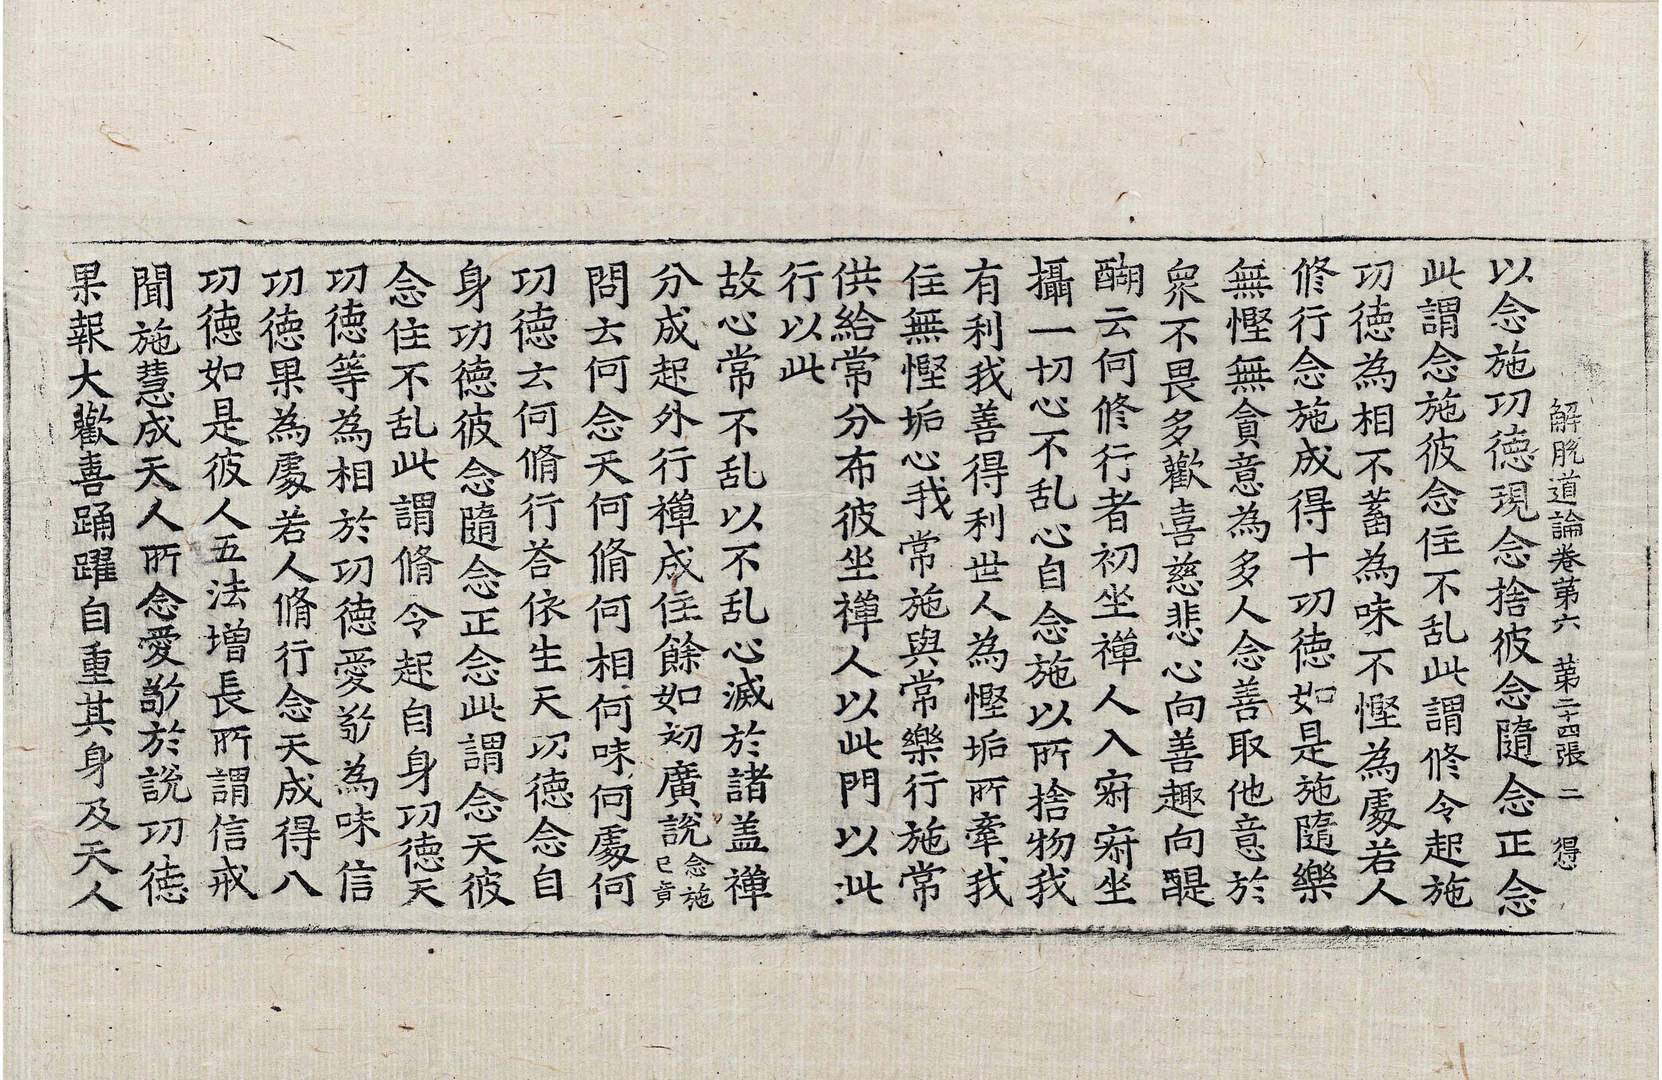 解脫道論卷第六　第二十四張　二　得
以念施功德現念捨彼念隨念正念
此謂念施彼念住不乱此謂修令起施
功德為相不蓄為味不慳為處若人
修行念施成得十功德如是施隨樂
無慳無貪意為多人念善取他意於
眾不畏多歡喜慈悲心向善趣向醍
醐云何修行者初坐禪人入寂寂坐
攝一切心不乱心自念施以所捨物我
有利我善得利世人為慳垢所牽我
住無慳垢心我常施與常樂行施常
供給常分布彼坐禪人以此門以此
行以此
故心常不乱以不乱心滅於諸盖禪
分成起外行禪成住餘如初廣說念施已竟
問云何念天何脩何相何味何處何
功德云何脩行荅依生天功德念自
身功德彼念隨念正念此謂念天彼
念住不乱此謂脩令起自身功德天
功德等為相於功德愛敬為味信
功德果為處若人脩行念天成得八
功德如是彼人五法增長所謂信戒
聞施慧成天人所念愛敬於說功德
果報大歡喜踊躍自重其身及天人